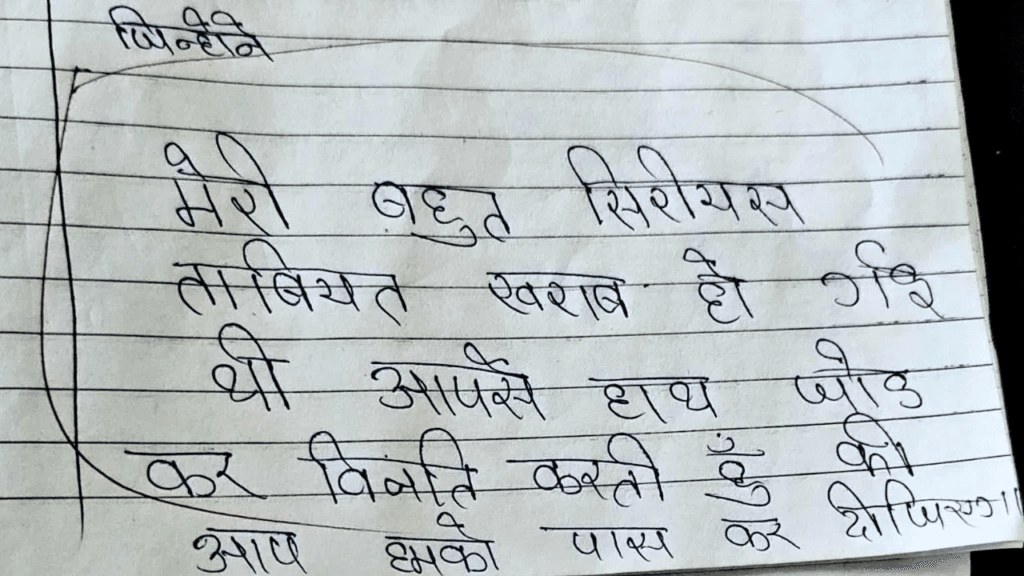 जिन्होने
मेरी बहुत सिरीयस
ताबियत खराब हो गई
थी आपसे हाथ जोड
कर विनति करती हुँ की
आप हमको पास कर दीजिएगा